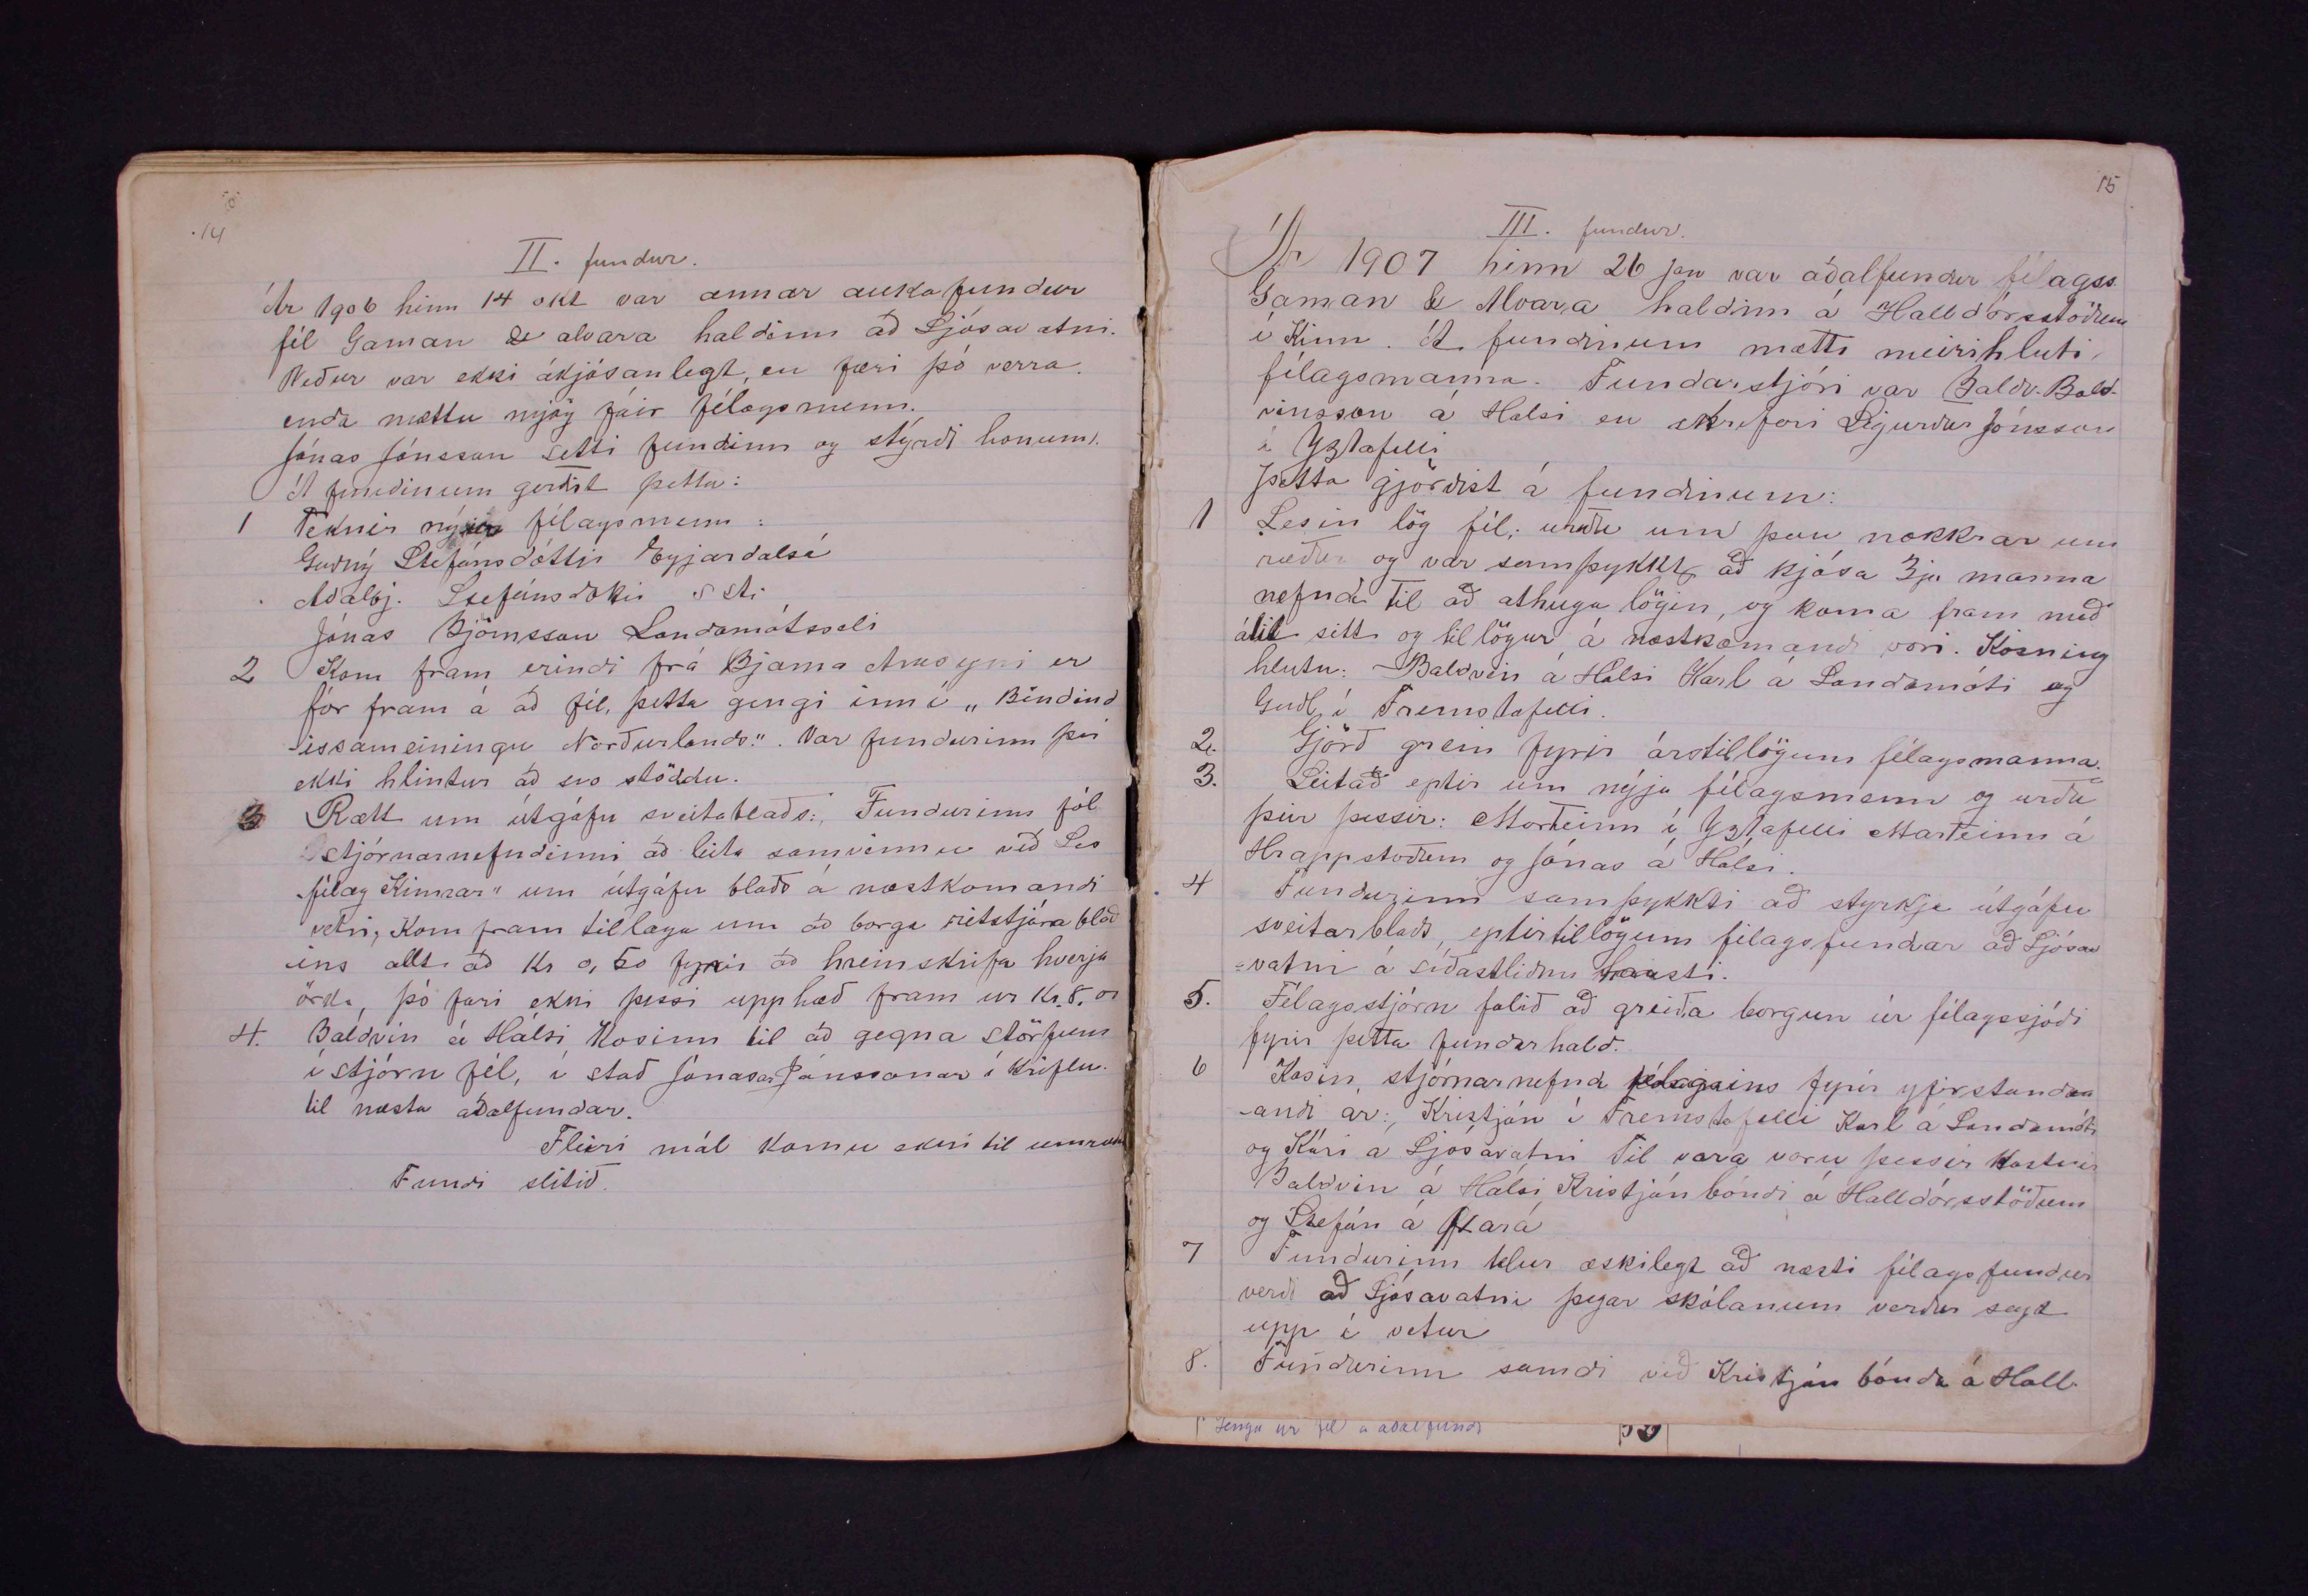 14
II. fundur.
Ár 1906 hinn 14 okt var annar aukafundur
fél Gaman & alvara haldinn að Ljósavatni.
Veður var ekki ákjósanlegt, en færi þó verra.
enda mættu mjög fáir félagsmenn.
Jónas Jónsson setti fundinn og stýrði honum.
Á fundinum gerðist þetta:
1 Teknir nýir félagsmenn:
Guðný Stefánsdóttir Eyjardalsá
Aðalbj. Stefánsdóttir s st.
Jónas Björnsson Landamótsseli
2 Kom fram erindi frá Bjarna er
fór fram á að fél. þetta gengi inn í „Bindind
issameiningu Norðurlands". Var fundurinn því
ekki hlintur að svo stöddu.
3 Rætt um útgáfu sveitablaðs: Fundurinn fól
stjórnarnefndinni að leita samvinnu við Les
félag Kinnar" um útgáfu blaðs á næstkomandi
vetri, Kom fram tillaga um að borga ritstjóra blað
ins allt að Kr 0,50 fyrir að hreinskrifa hverja
örk, þó fari ekki þessi upphæð fram úr Kr. 8.00
4. Baldvin á Hálsi Kosinn til að gegna störfum
í stjórn fél, í stað Jónasar Jónssonar í Hriflu.
til næsta aðalfundar.
Fleiri mál komu ekki til umræðu
Fundi slitið.
15
III. fundur.
Ár 1907 hinn 26 Jan var aðalfundur félagss
Gaman & Alvara haldinn á Halldórsstöðum
í Kinn. Á fundinum mætti meirihluti
félagsmanna. Fundarstjóri var Baldv. Bald-
vinsson á Hálsi en skrifari Sigurður Jónsson
á Yztafelli
Þetta gjörðist á fundinum:
1 Lesin lög fél; urðu um þau nokkrar um
ræður og var samþykkt að kjósa 3ja manna
nefnd til að athuga lögin, og koma fram með
álit sitt og tillögur á næstkomandi vori. Kosning
hlutu: Baldvin á Hálsi Karl á Landamóti og
Guðl. í Fremstafelli.
2. Gjörð grein fyrir árstillögum félagsmanna.
3. Leitað eptir um nýja félagsmenn og urðu
þeir þessir: Marteinn í Yztafelli Marteinn á
Hrappstöðum og Jónas á Hálsi.
4 Fundurinn samþykkti að styrkja útgáfu
sveitarblaðs, eptir tillögum félagsfundar að Ljósa
=vatni á síðastliðnu hausti.
5. Félagsstjórn falið að greiða borgun úr félagssjóði
fyrir þetta fundarhald.
6 Kosin stjórnarnefnd félagsins fyrir yfirstandan
-andi ár:, Kristján í Fremstafelli Karl á Landamóti
og Kári á Ljósavatni Til vara voru þessir kostnir
Baldvin á Hálsi, Kristján bóndi á Halldórsstöðum
og Stefán á
7 Fundurinn telur æskilegt að næsti félagsfundur
verði að Ljósavatni þegar skólanum verður sagt
upp í vetur
8. Fundurinn samdi við Kristján bónda á Hall
Jenga úr fél á aðalfundi